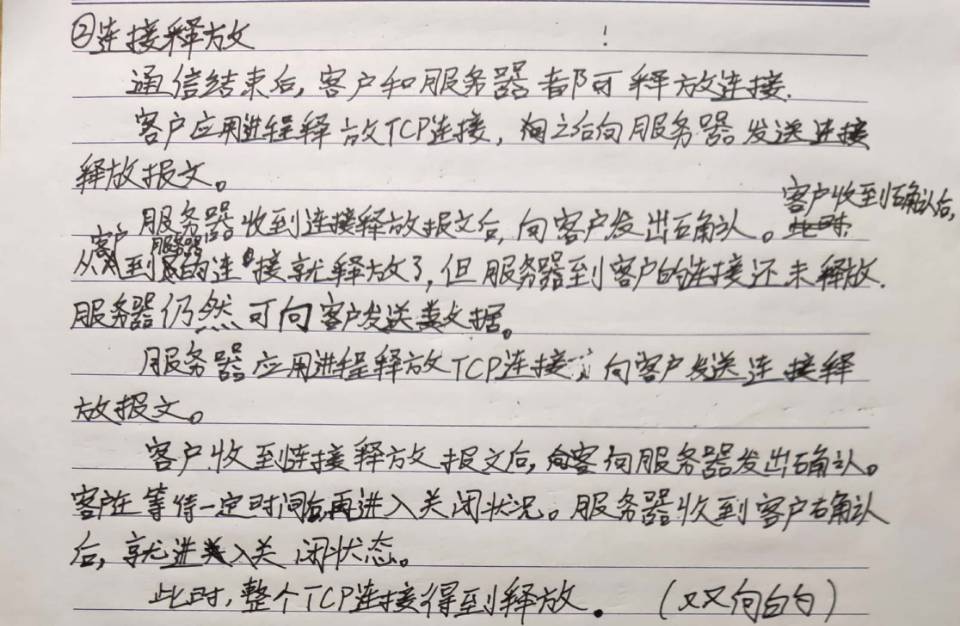 ②连接释放
通信结束后,客户和服务器都可释放连接.
客户应用进程释放TCP连接,向服务器发送连接
释放报文。
服务器收到连接释放报文后,向客户发出确认。客户收到确认后,
从客户到服务器的连接就释放了,但服务器到客户的连接还未释放.
服务器仍然可向客户发送数据。
服务器应用进程释放TCP连接;向客户发送连接释
放报文。
客户收到连接释放报文后,向服务器发出确认。
客户在等待一定时间后再进入关闭状况。服务器收到客户确认
后,就进入关闭状态。
此时,整个TCP连接得到释放。(双向的)